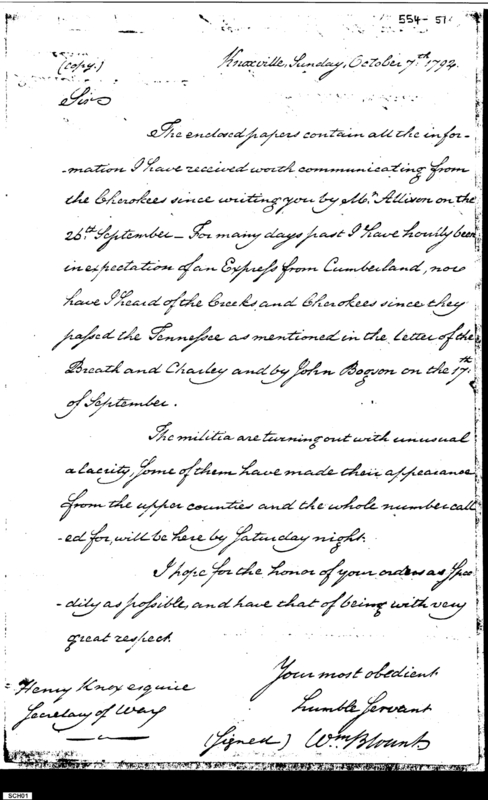 554-51
(copy.) Knoxville, Sunday, October 7th 1792.
Sir
The enclosed papers contain all the infor-
-mation I have received worth communicating from
the Cherokees since writing you by Mr. Allison on the
26th September - For many days past I have hourly been
in expectation of an Express from Cumberland, nor
have I heard of the Creeks and Cherokees since they
passed the Tennessee as mentioned in the letter of the
Breath and Charley and by John Bogson on the 17th
of September.
The militia are turning out with unusual
alacrity, some of them have made their appearance
from the upper counties and the whole number call
-ed for, will be here by Saturday night.
I hope for the honor of your orders as spee
-dily as possible, and have that of being with very
great respect
Your most obedient
humble Servant
(signed) Wm Blount
Henry Knox esquire
Secretary of War
SCH01